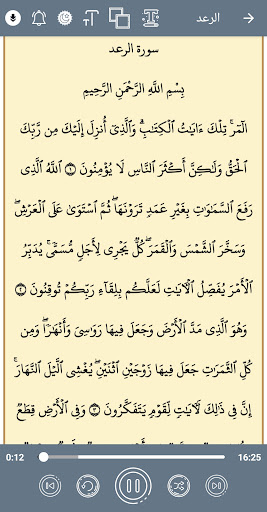 الرعد
سورة الرعد
بِسْمِ اللَّهِ الرَّحْمَنِ الرَّحِيمِ
الٓمٓرۚ تِلْكَ ءَايَٰتُ ٱلْكِتَٰبِۗ وَٱلَّذِىٓ أُنزِلَ إِلَيْكَ مِن رَّبِّكَ
ٱلْحَقُّ وَلَٰكِنَّ أَكْثَرَ ٱلنَّاسِ لَا يُؤْمِنُونَ ١ ٱللَّهُ ٱلَّذِى
رَفَعَ ٱلسَّمَٰوَٰتِ بِغَيْرِ عَمَدٍ تَرَوْنَهَاۖ ثُمَّ ٱسْتَوَىٰ عَلَى ٱلْعَرْشِۖ
وَسَخَّرَ ٱلشَّمْسَ وَٱلْقَمَرَۖ كُلٌّ يَجْرِى لِأَجَلٍ مُّسَمًّىۚ يُدَبِّرُ
ٱلْأَمْرَ يُفَصِّلُ ٱلْءَايَٰتِ لَعَلَّكُم بِلِقَآءِ رَبِّكُمْ تُوقِنُونَ ٢
وَهُوَ ٱلَّذِى مَدَّ ٱلْأَرْضَ وَجَعَلَ فِيهَا رَوَٰسِىَ وَأَنْهَٰرًاۖ وَمِن
كُلِّ ٱلثَّمَرَٰتِ جَعَلَ فِيهَا زَوْجَيْنِ ٱثْنَيْنِۖ يُغْشِى ٱلَّيْلَ ٱلنَّهَارَۚ
إِنَّ فِى ذَٰلِكَ لَءَايَٰتٍ لِّقَوْمٍ يَتَفَكَّرُونَ ٣ وَفِى ٱلْأَرْضِ قِطَعٌ
0:12
16:25